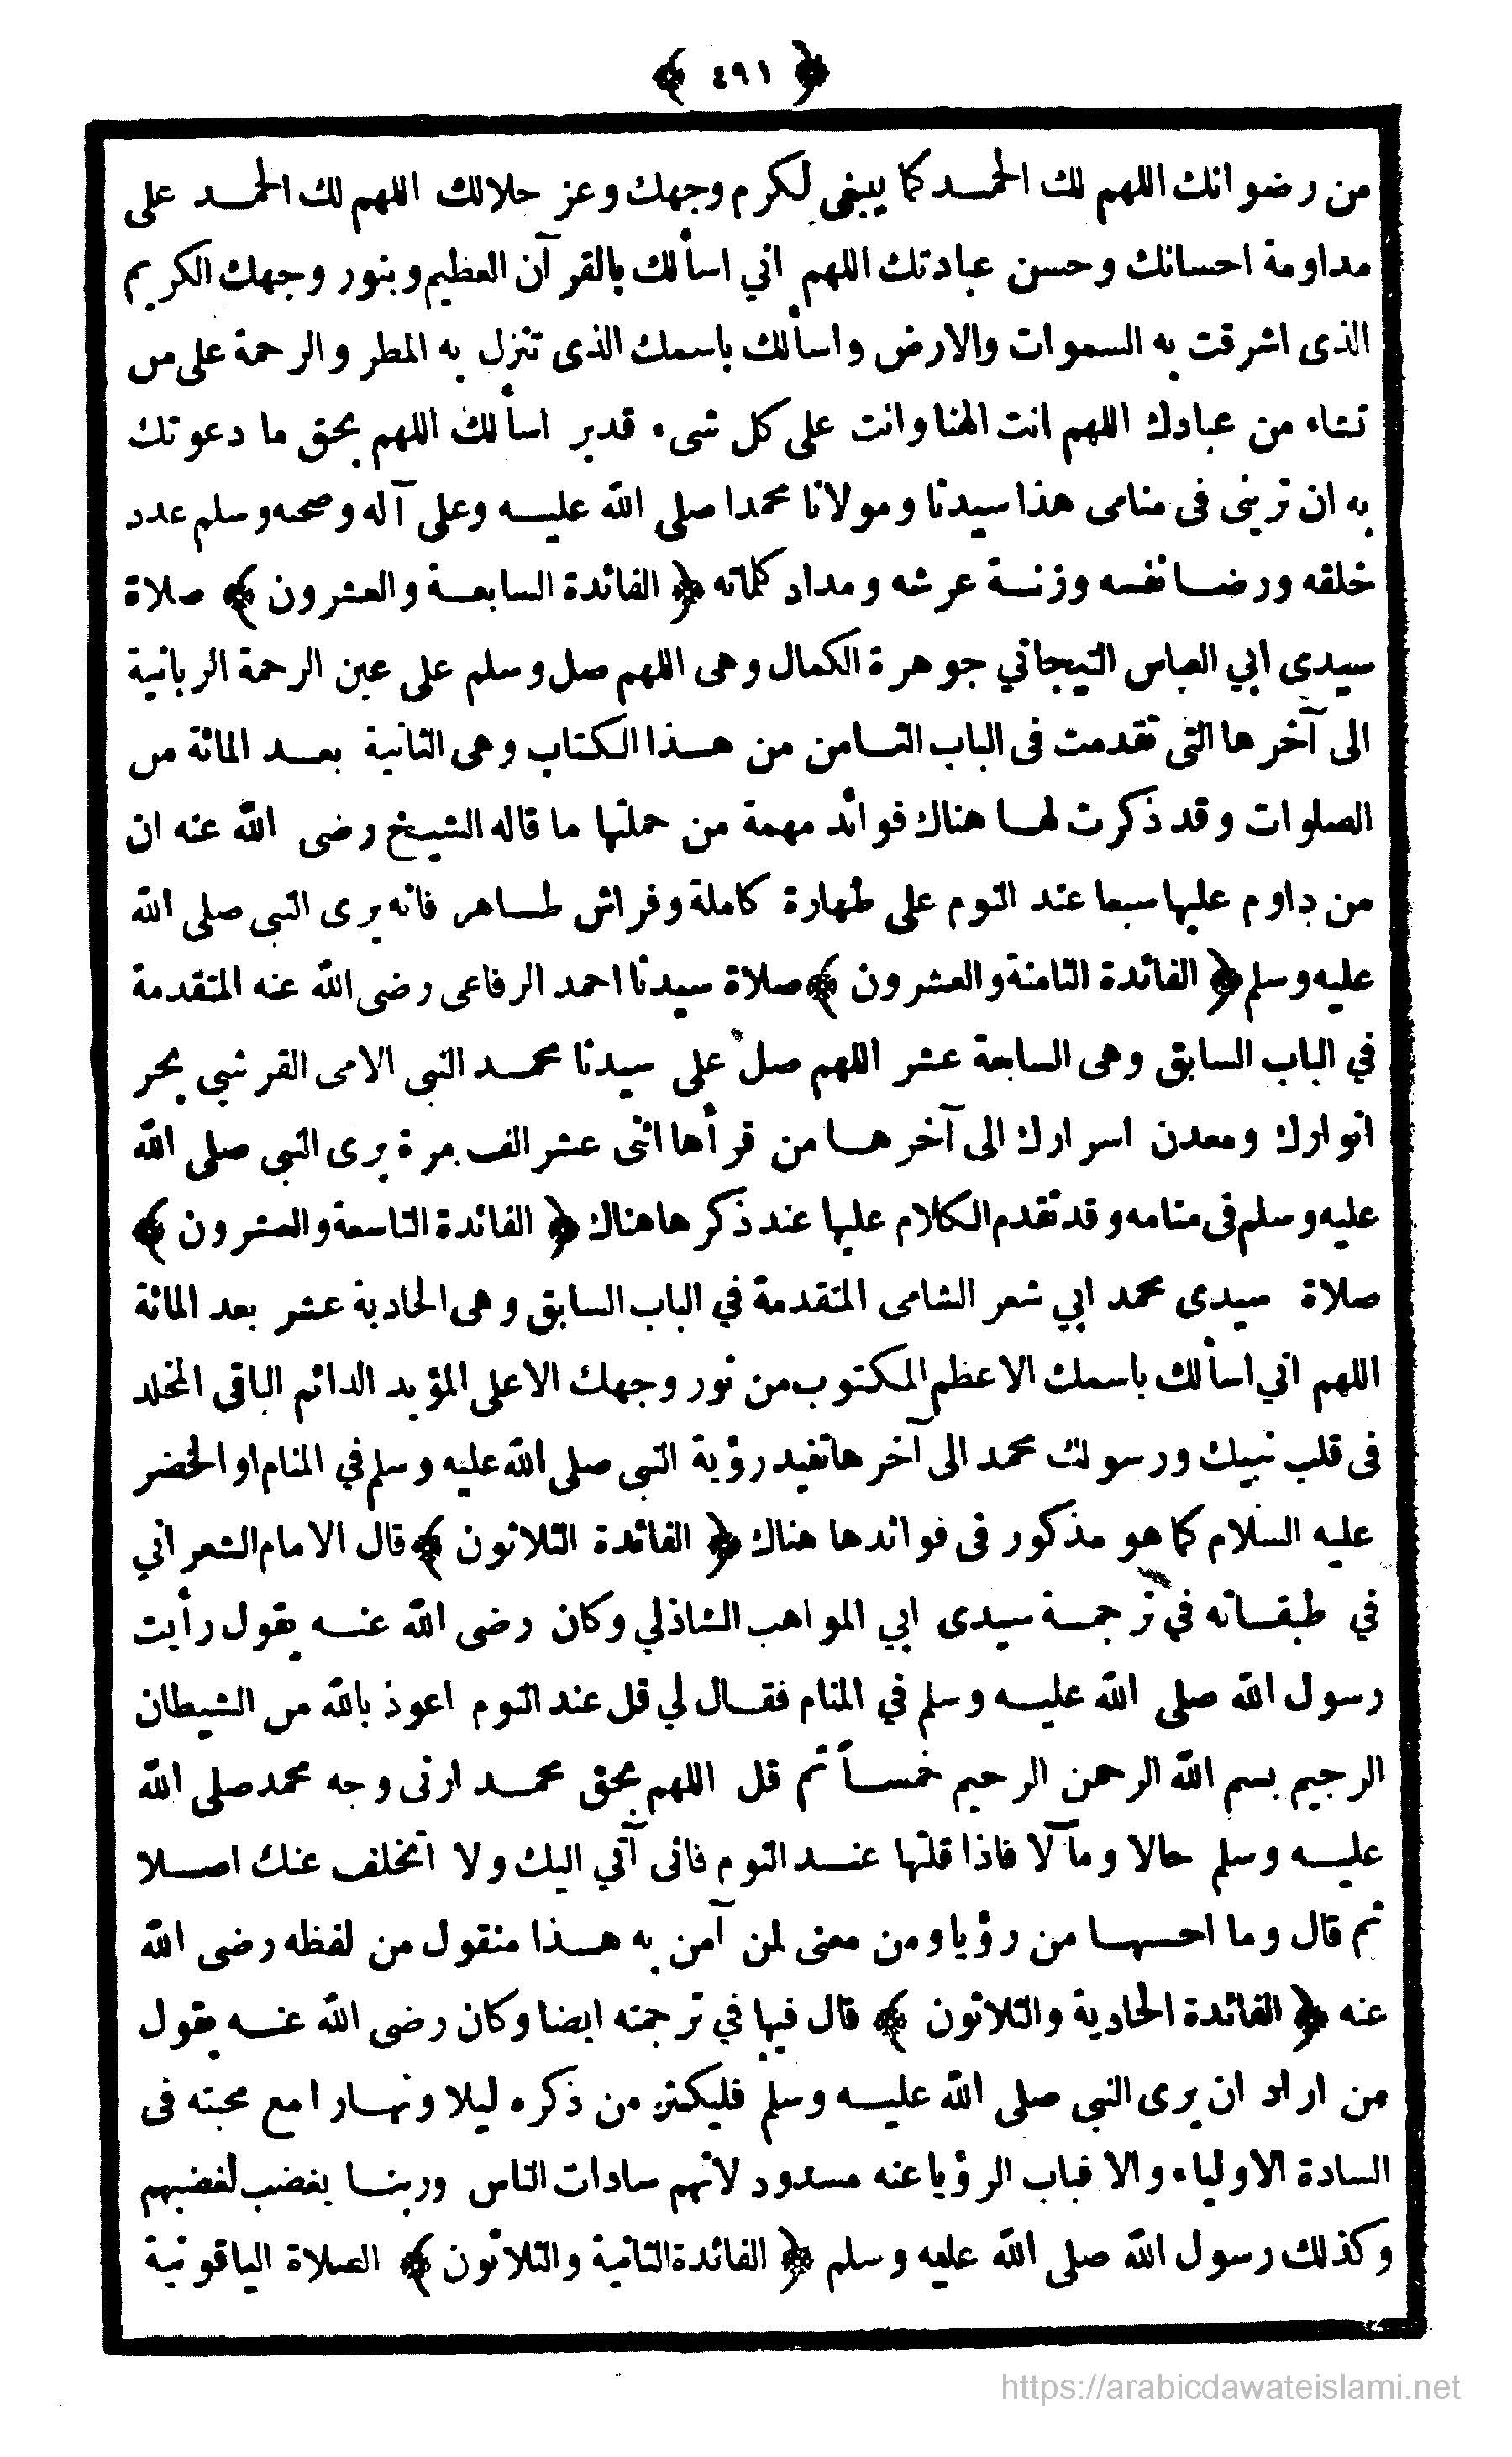 ﴿ ٤٩١ ﴾
من رضوانك اللهم لك الحمد كما ينبغي لكرم وجهك وعز جلالك اللهم لك الحمد على
مداومة احسانك وحسن عبادتك اللهم اني اسألك بالقرآن العظيم وبنور وجهك الكريم
الذى اشرقت به السموات والارض واسألك باسمك الذى تنزل به المطر والرحمة على من
تشاء من عبادك اللهم انت الهنا وانت على كل شىء قدير اسألك اللهم بحق ما دعوتك
به ان ترينى فى منامى هذا سيدنا ومولانا محمدا صلى الله عليه وعلى آله وصحبه وسلم عدد
خلقه ورضا نفسه وزنة عرشه ومداد كلماته ﴿ الفائدة السابعة والعشرون ﴾ صلاة
سيدى ابي العباس التيجاني جوهرة الكمال وهى اللهم صل وسلم على عين الرحمة الربانية
الى آخرها التى تقدمت فى الباب الثامن من هذا الكتاب وهى الثانية بعد المائة من
الصلوات وقد ذكرت لها هناك فوائد مهمة من جملتها ما قاله الشيخ رضى الله عنه ان
من داوم عليها سبعا عند النوم على طهارة كاملة وفراش طاهر فانه يرى النبى صلى الله
عليه وسلم ﴿ الفائدة الثامنة والعشرون ﴾ صلاة سيدنا احمد الرفاعى رضى الله عنه المتقدمة
في الباب السابق وهى السابعة عشر اللهم صل على سيدنا محمد النبى الامى القرشى بحر
انوارك ومعدن اسرارك الى آخرها من قرأها اثنى عشر الف مرة يرى النبى صلى الله
عليه وسلم فى منامه وقد تقدم الكلام عليها عند ذكرها هناك ﴿ الفائدة التاسعة والعشرون ﴾
صلاة سيدى محمد ابي شعر الشامى المتقدمة في الباب السابق وهى الحادية عشر بعد المائة
اللهم اني اسألك باسمك الاعظم المكتوب من نور وجهك الاعلى المؤبد الدائم الباقى المخلد
فى قلب نبيك ورسولك محمد الى آخرها تفيد رؤية النبى صلى الله عليه وسلم في المنام او الخضر
عليه السلام كما هو مذكور فى فوائدها هناك ﴿ الفائدة الثلاثون ﴾ قال الامام الشعراني
في طبقاته في ترجمة سيدى ابي المواهب الشاذلي وكان رضى الله عنه يقول رأيت
رسول الله صلى الله عليه وسلم في المنام فقال لي قل عند النوم اعوذ بالله من الشيطان
الرجيم بسم الله الرحمن الرحيم خمساً ثم قل اللهم بحق محمد ارنى وجه محمد صلى الله
عليه وسلم حالا ومآلا فاذا قلتها عند النوم فانى آتي اليك ولا اتخلف عنك اصلا
ثم قال وما احسنها من رؤيا ومن معنى لمن آمن به هذا منقول من لفظه رضى الله
عنه ﴿ الفائدة الحادية والثلاثون ﴾ قال فيها في ترجمته ايضا وكان رضى الله عنه يقول
من اراد ان يرى النبي صلى الله عليه وسلم فليكثر من ذكره ليلا ونهارا مع محبته فى
السادة الاولياء والا فباب الرؤيا عنه مسدود لانهم سادات الناس وربنا يغضب لغضبهم
وكذلك رسول الله صلى الله عليه وسلم ﴿ الفائدة الثانية والثلاثون ﴾ الصلاة الياقوتية
https://arabicdawateislami.net